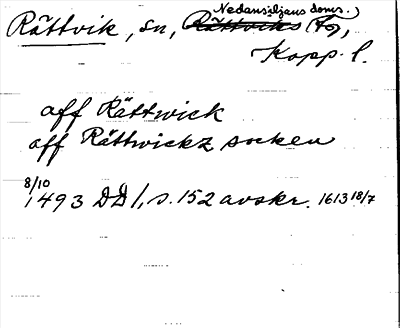 Nedansiljans doms.
Rättvik, sn, Rättviks (Fg),
Kopp. l.
aff Rättwick
aff Rättwickz socken
8/10
1493 DD 1, s. 152 avskr. 1613 18/7